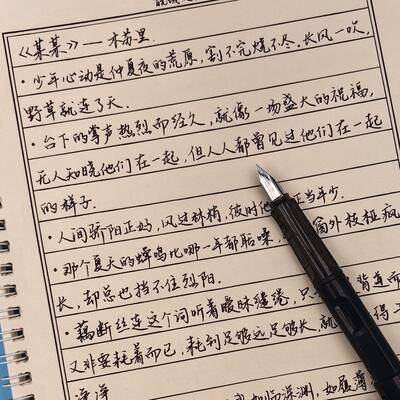 《某某》——木苏里
·少年心动是仲夏夜的荒原,割不完烧不尽.长风一吹,
野草就连了天.
·台下的掌声热烈而经久,就像一场盛大的祝福,
无人知晓他们在一起,但人人都曾见过他们在一起
的样子.
·人间骄阳正好,风过林梢,彼时他 正当年少.
·那个夏天的蝉鸣比哪一年都聒噪 窗外枝桠疯
长,却总也挡不住烈阳.
·藕断丝连这个词听着暧昧缱绻,只 背道而
又非要耗着而已,耗到足够远足够长,就 得
净净
如临深渊,如履薄